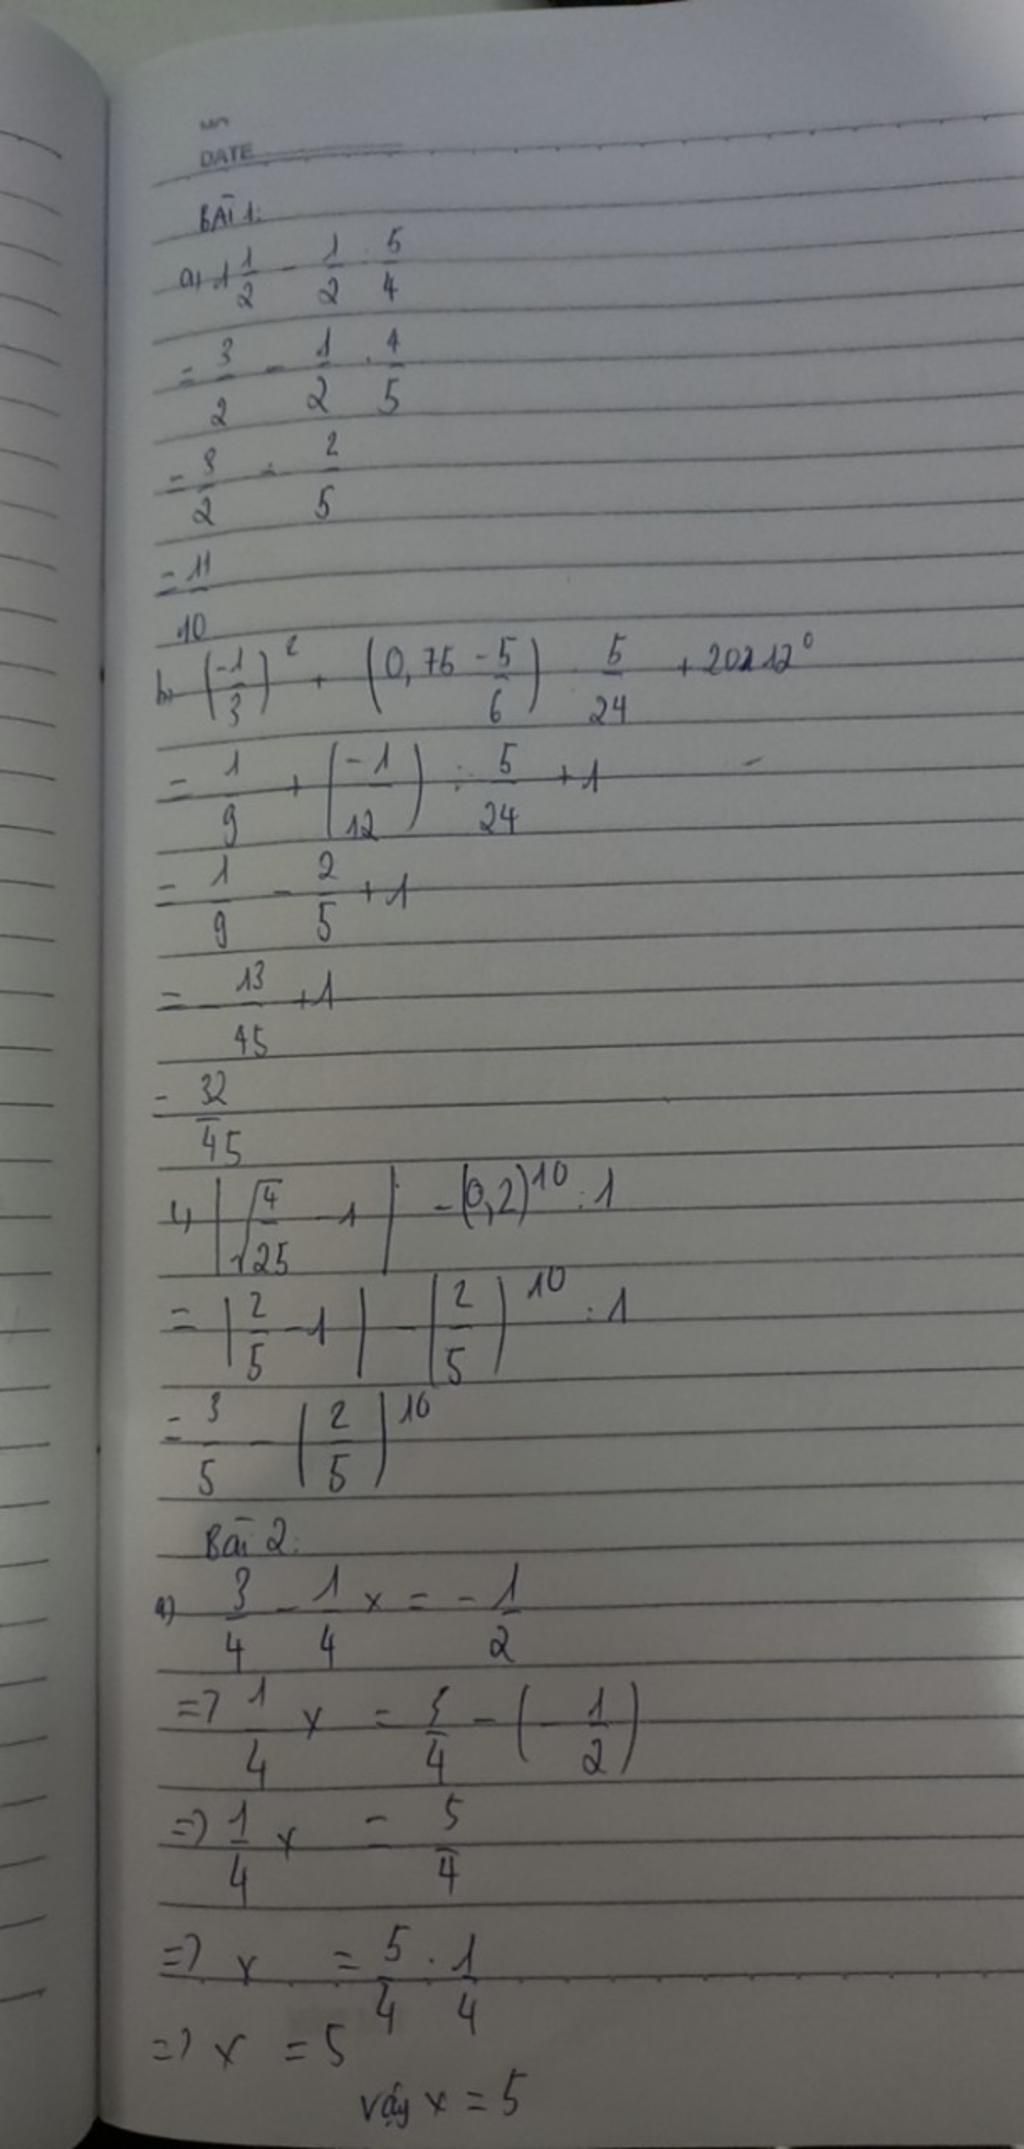 DATE
BÀI 1:
a) 1 1/2 - 1/2 : 5/4
= 3/2 - 1/2 . 4/5
= 3/2 - 2/5
= 11/10
b) (-1/3)² + (0,75 - 5/6) : 5/24 + 2022¹²⁰
= 1/9 + (-1/12) : 5/24 + 1
= 1/9 - 2/5 + 1
= - 13/45 + 1
= 32/45
|√4/25 - 1| - (0,2)¹⁰ : 1
= |2/5 - 1| - (2/5)¹⁰ : 1
= 3/5 - (2/5)¹⁰
Bài 2:
a) 3/4 - 1/4 x = - 1/2
=> 1/4 x = 3/4 - (- 1/2)
=> 1/4 x = 5/4
=> x = 5/4 . 1/4
=> x = 5
vậy x = 5